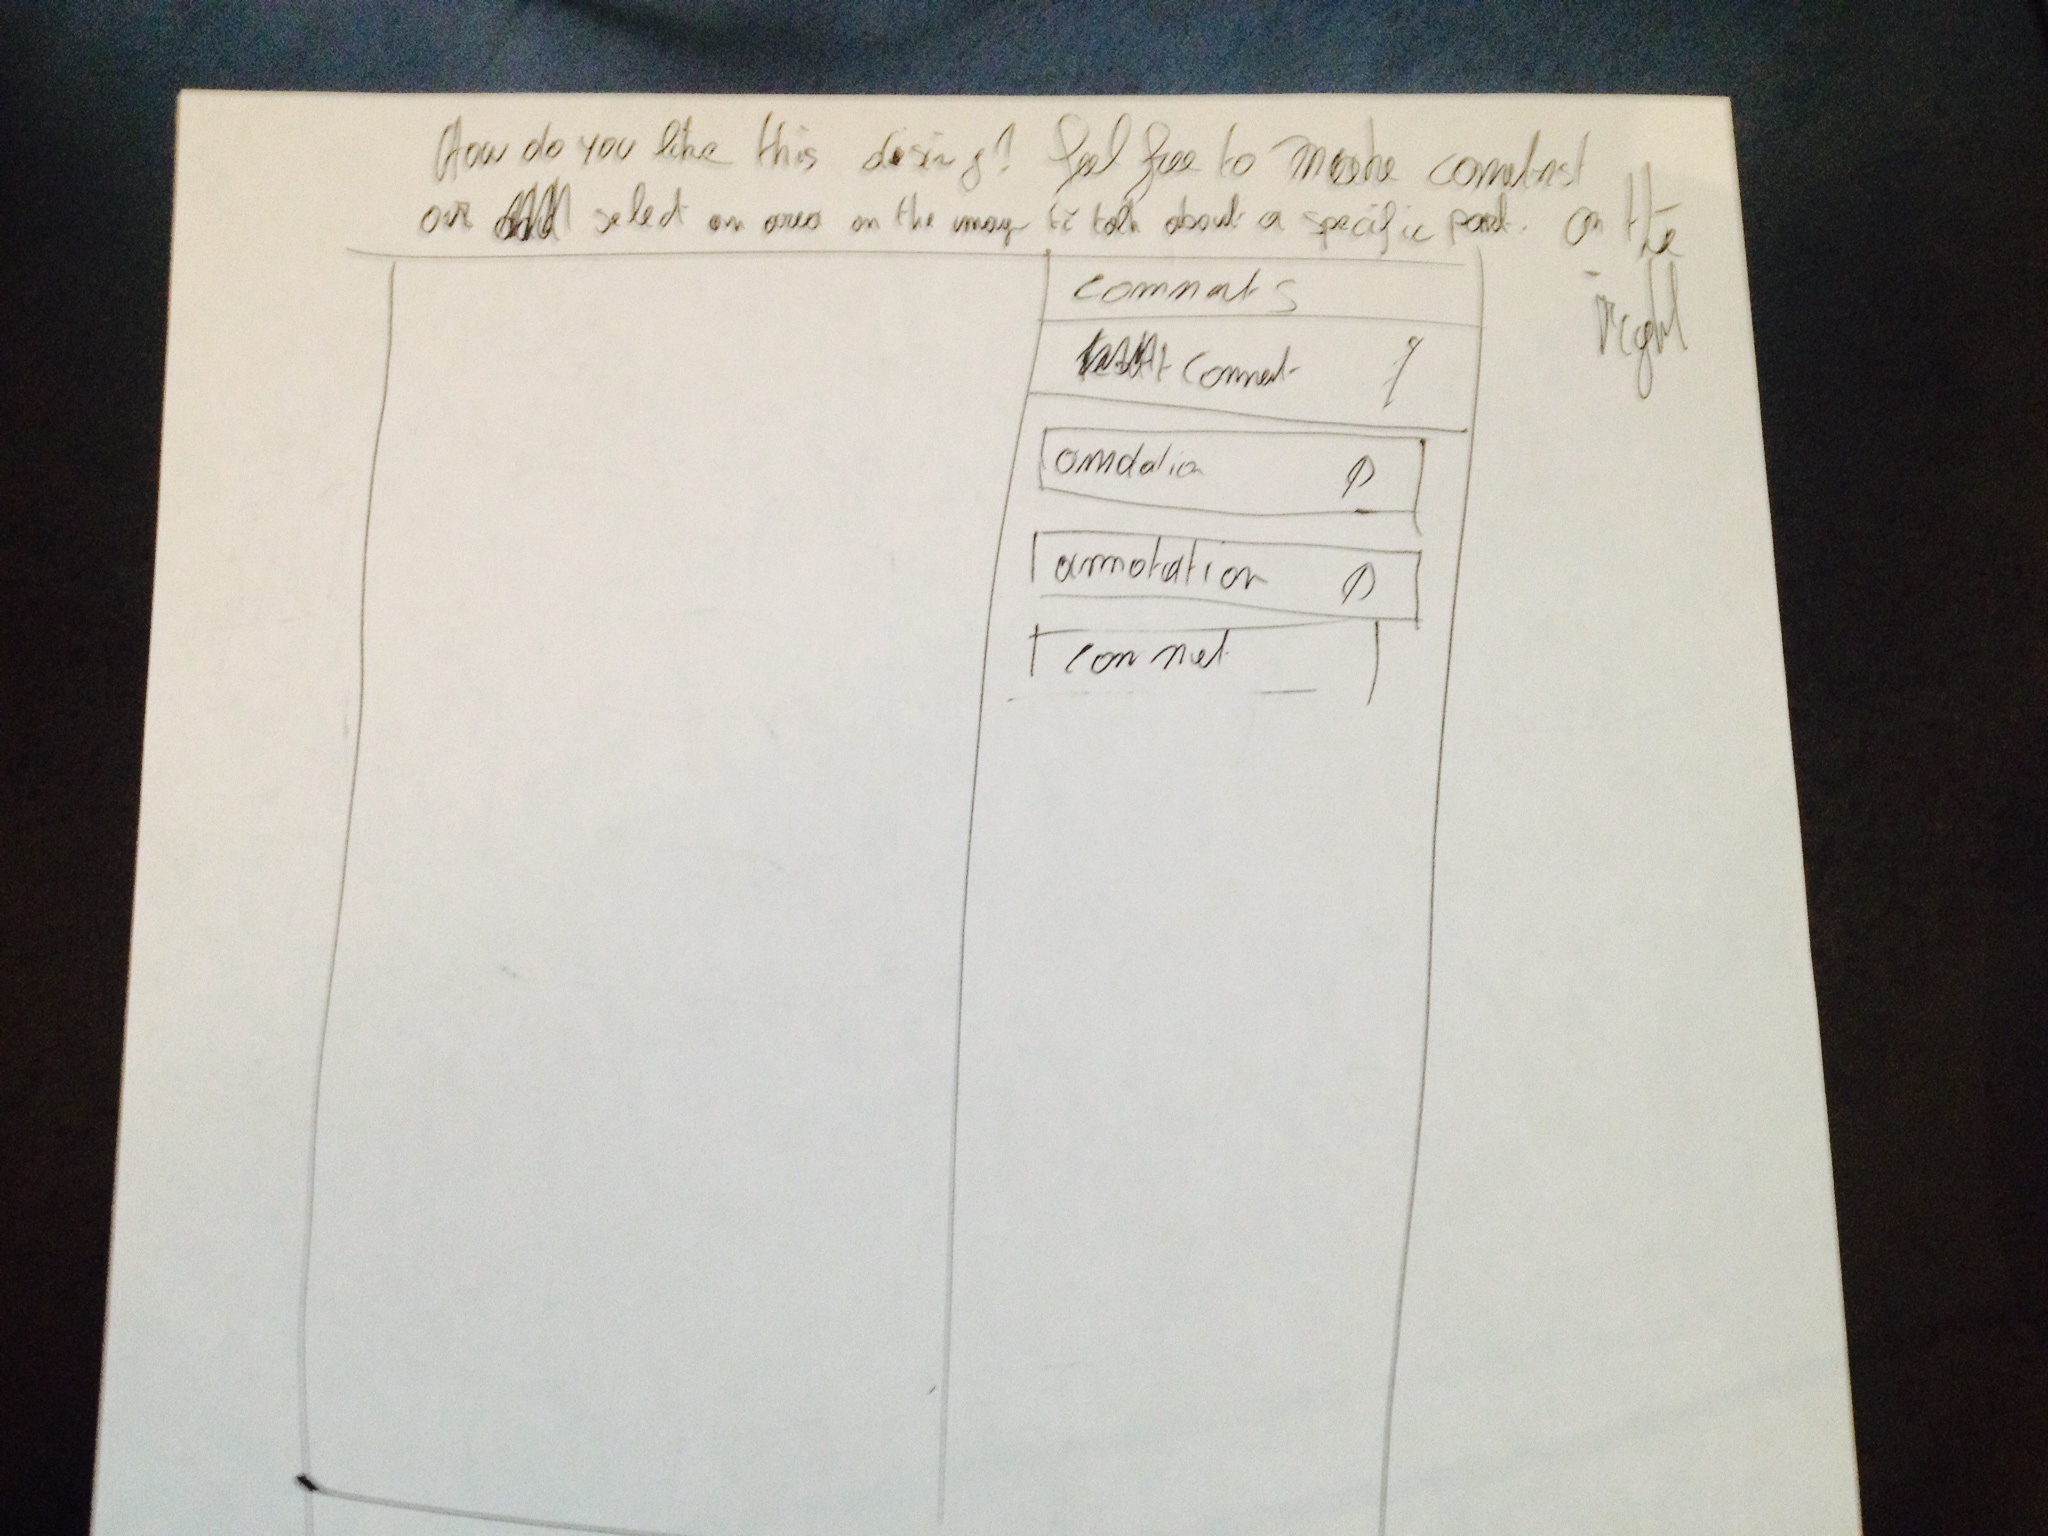 How do you like this desing? feel free to make comments on the right
or select an area on the image to talk about a specific part.
comments
comment
annotation
annotation
comment